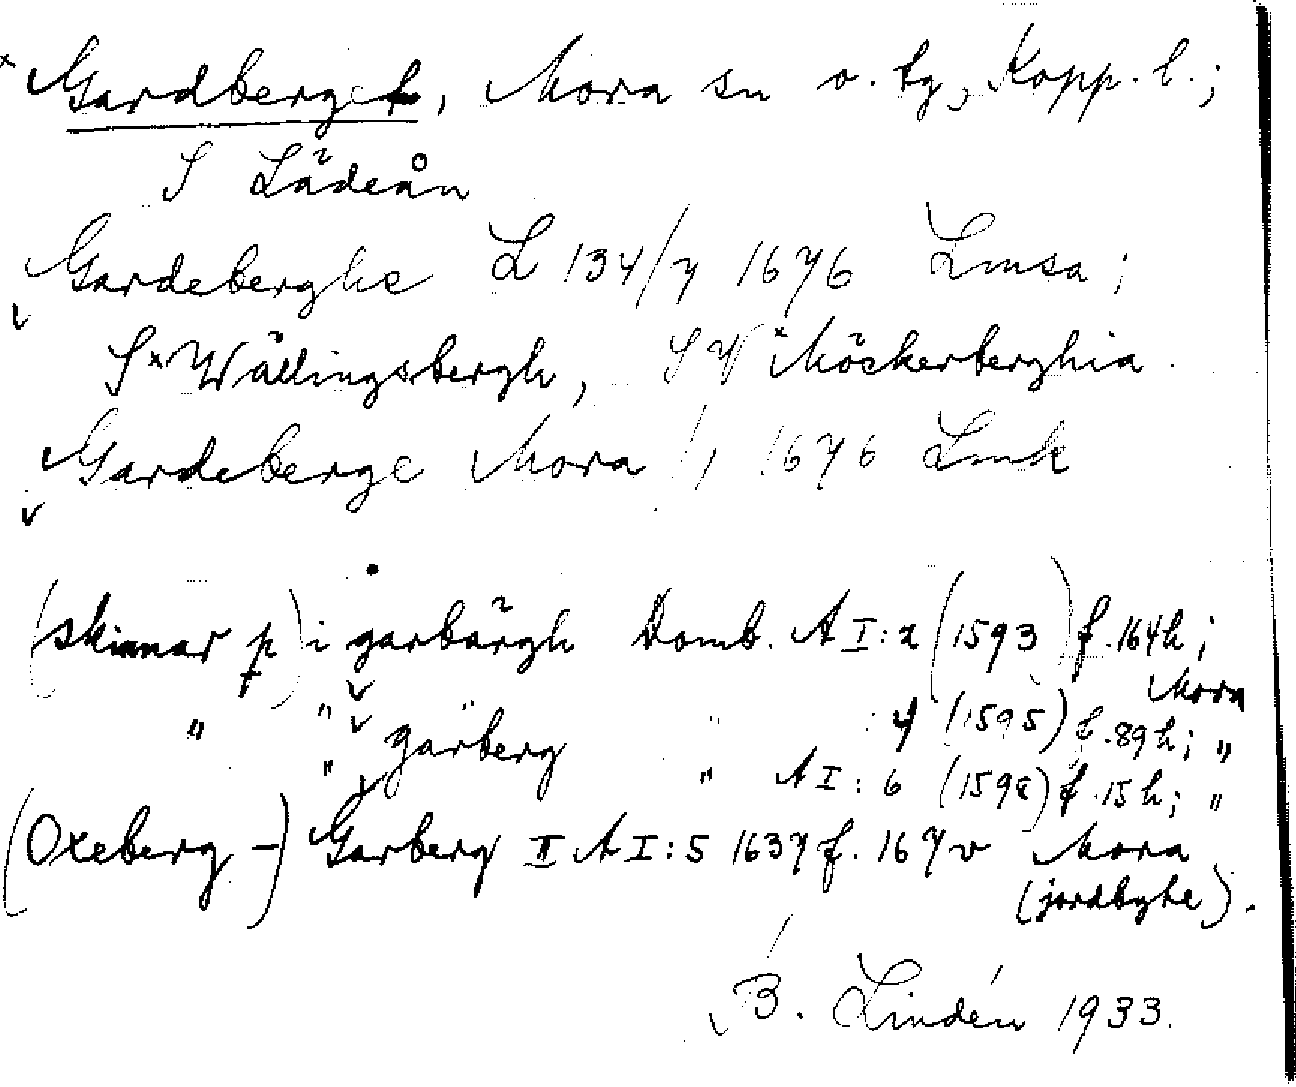 × Gardberget, Mora sn o. tg, Kopp. l.;
S Lädeån
Gardeberghe L 134/7 1676 Lmsa;
S × Wällingsbergh, SV × Möckerberghia.
Gardeberge Mora 1/1 1676 Lmk
(skinnar p) i garbärgh Domb. AI:2 (1593) f. 164h; Mora
" " gärberg " :4 (1595) f. 89h; "
" " AI:6 (1598) f. 15h; "
(Oxeberg-) Garberg II AI:5 1637 f. 167v Mora
(jordbyte).
B. Lindén 1933.